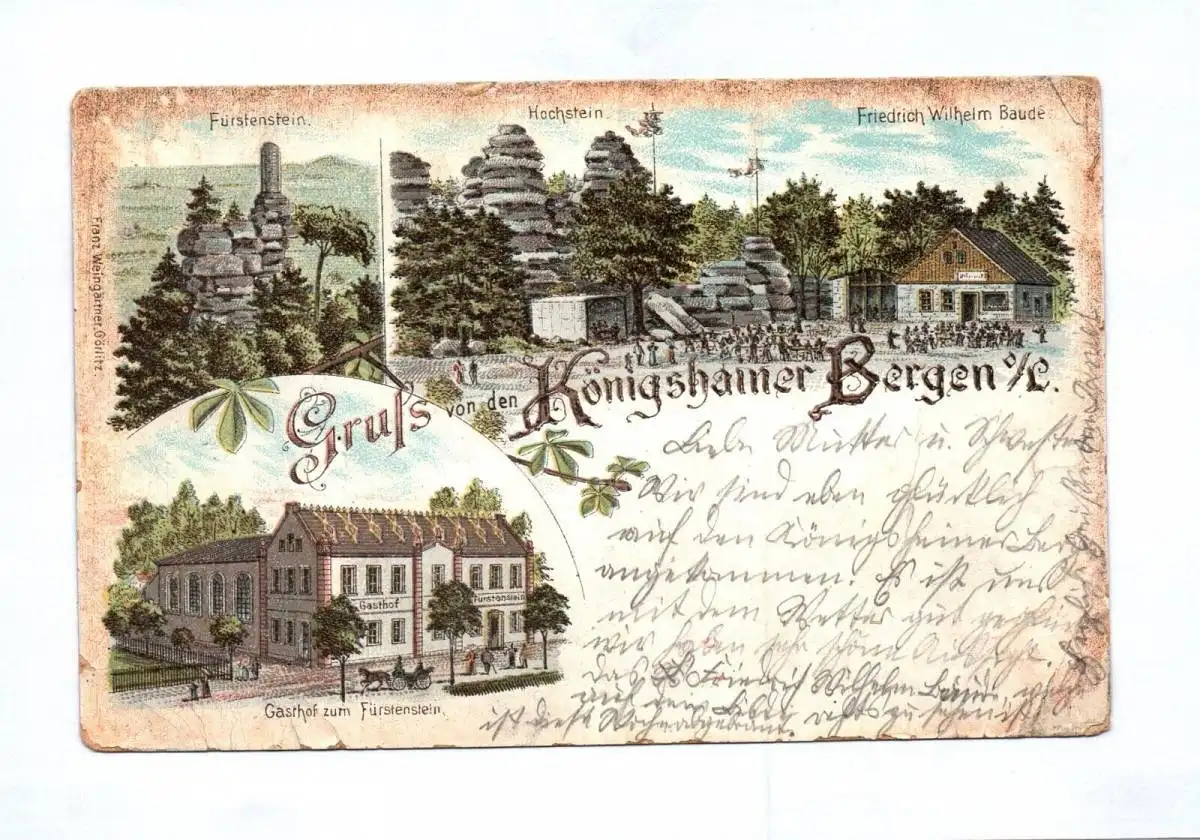 Fürstenstein.
Hochstein.
Friedrich Wilhelm Baude.
Franz Weingärtner, Görlitz.
Gruſs von den Königshainer Bergen O/L.
Gasthof
Fürstenstein
Gasthof zum Fürstenstein.
Liebe Mutter u. Schwester
Wir sind eben glücklich
auf den Königsheiner Ber
angekommen. Es ist uns
mit dem Wetter gut geglü
wir haben sehr schöne Aussicht.
das Friedrich Wilhelm Baude, welche
auf dem Bilde rechts zu sehn ist
ist diese Woche abgebrannt.